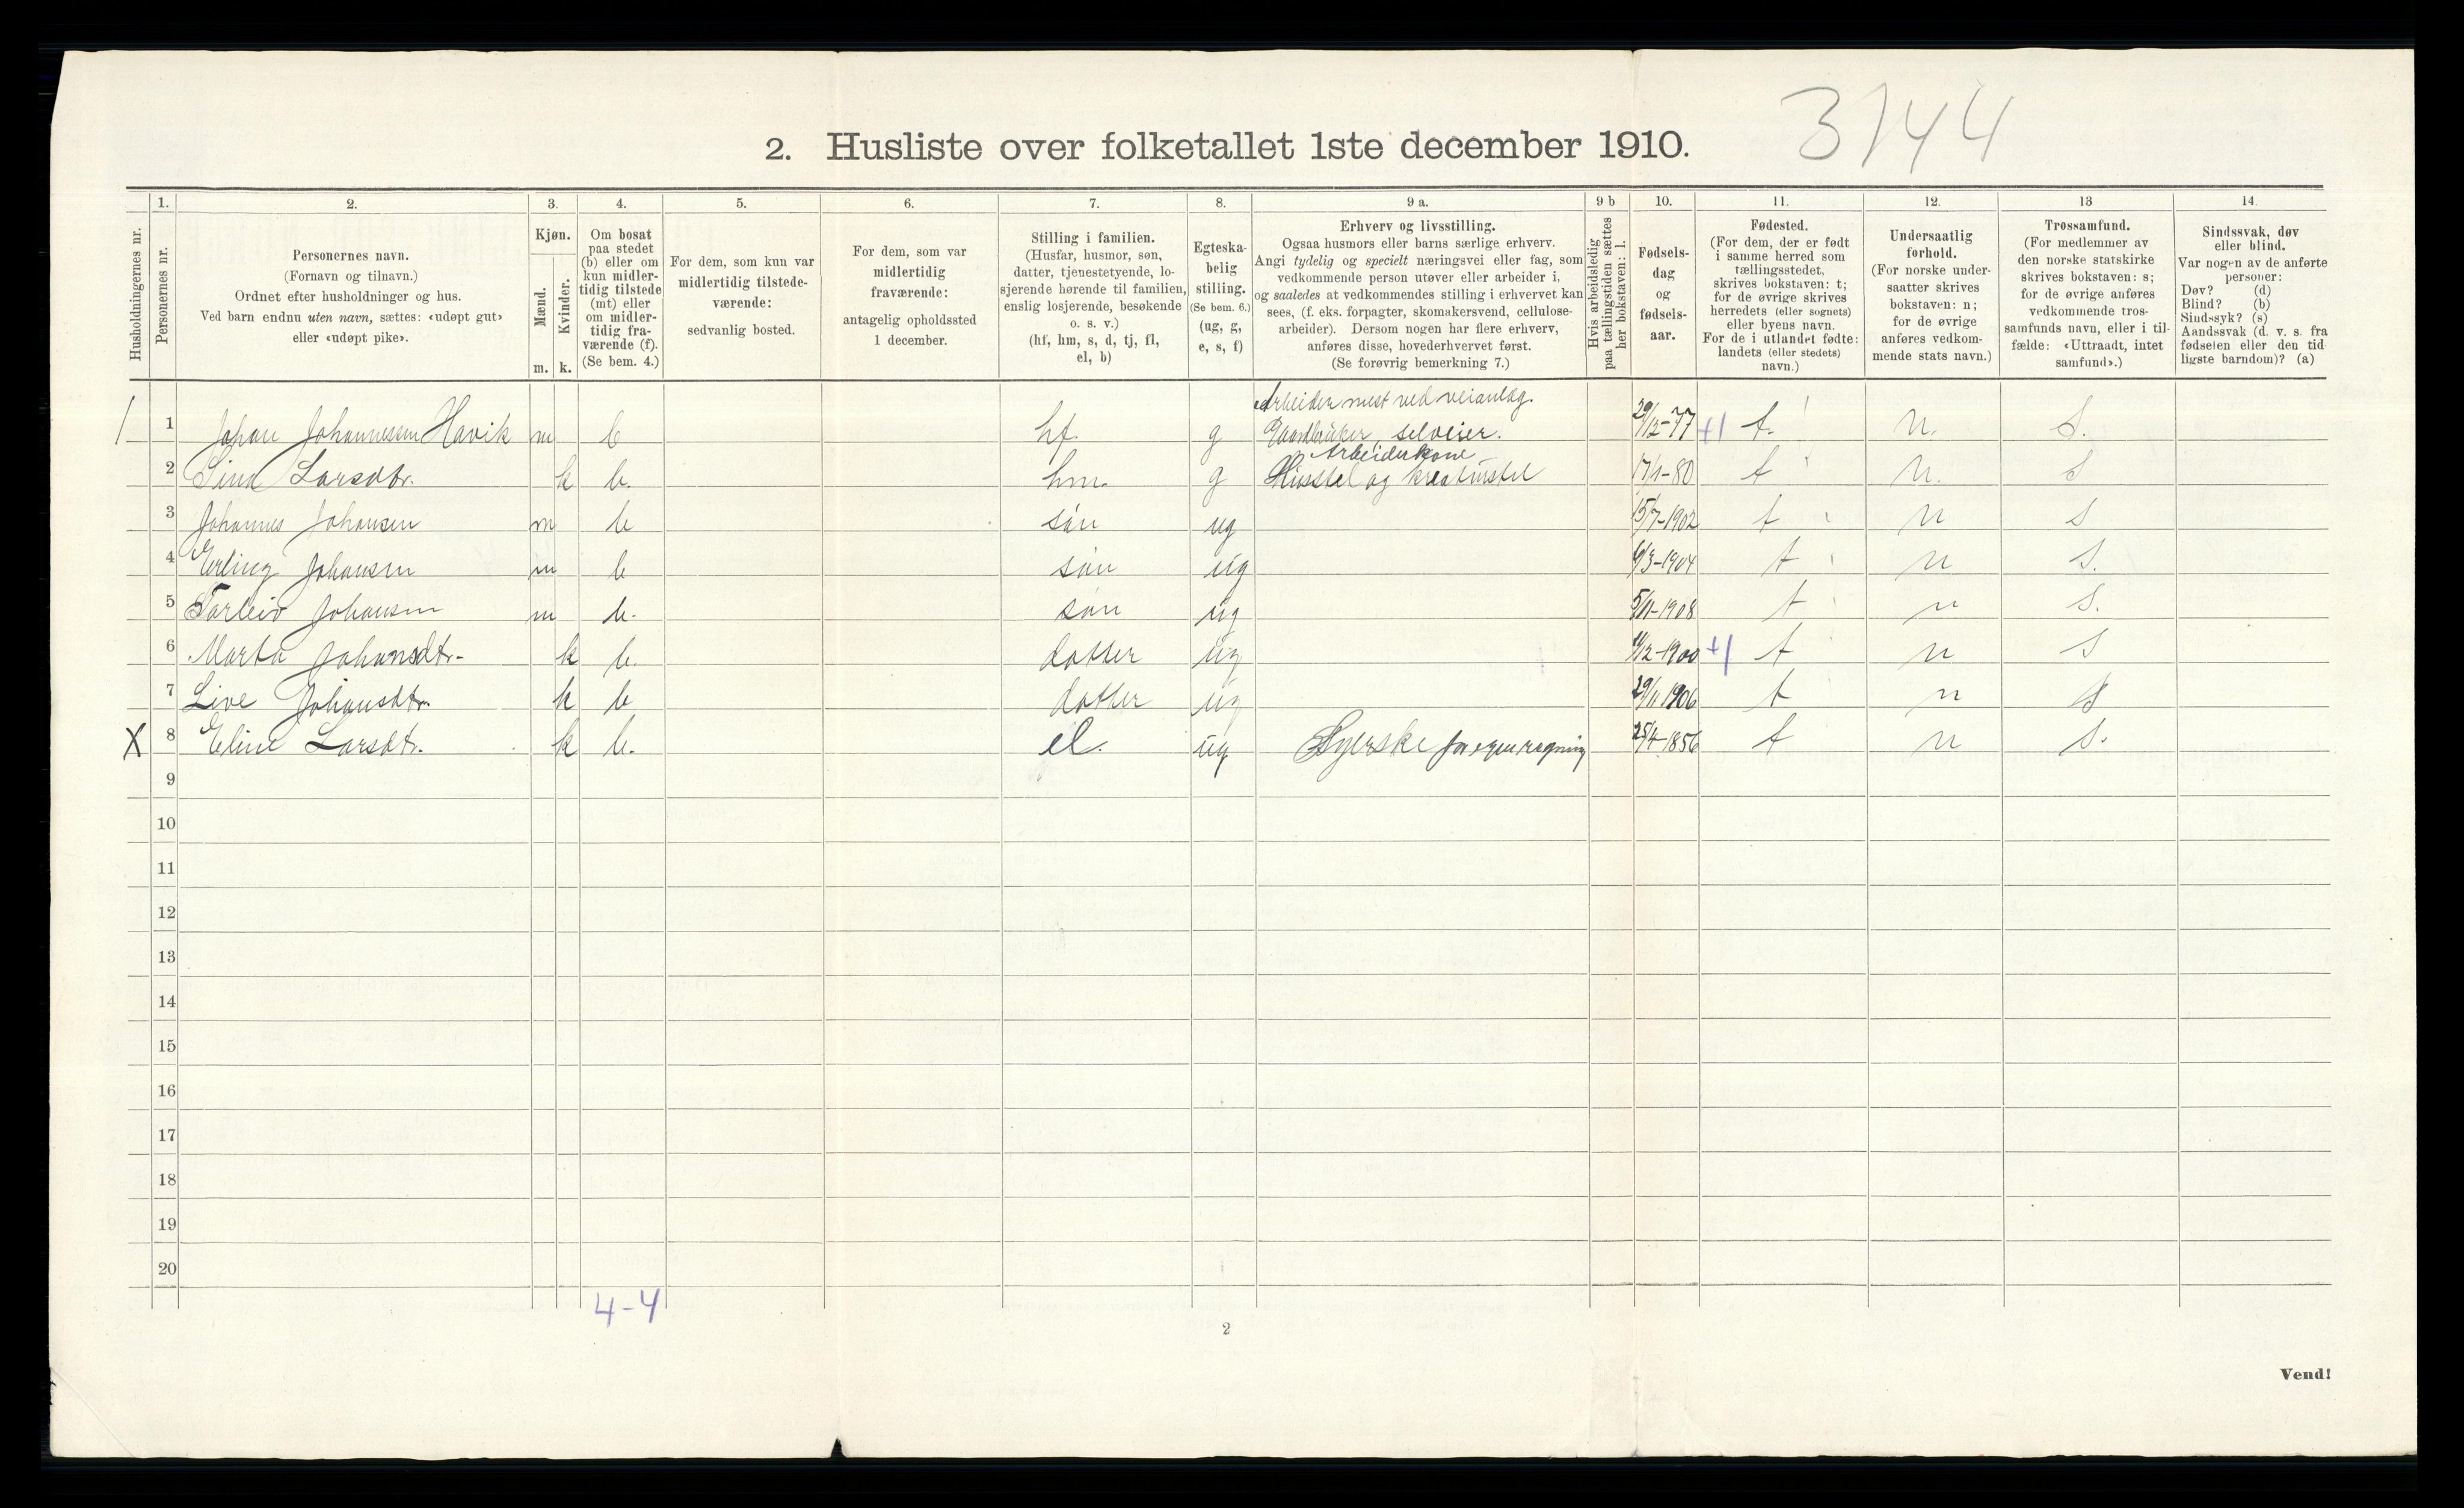 3144
2. Husliste over folketallet 1ste december 1910.
Husholdningernes nr.
1.
Personernes nr.
2.
Personernes navn.
(Fornavn og tilnavn.)
Ordnet efter husholdninger og hus.
Ved barn endnu uten navn, sættes: «udøpt gut»
eller «udøpt pike».
3.
Kjøn.
Mænd.
Kvinder.
m. k.
4.
Om bosat
paa stedet
(b) eller om
kun midler-
tidig tilstede
(mt) eller
om midler-
tidig fra-
værende (f).
(Se bem. 4.)
5.
For dem, som kun var
midlertidig tilstede-
værende:
sedvanlig bosted.
6.
For dem, som var
midlertidig
fraværende:
antagelig opholdssted
1 december.
7.
Stilling i familien.
(Husfar, husmor, søn,
datter, tjenestetyende, lo-
sjerende hørende til familien,
enslig losjerende, besøkende
o. s. v.)
(hf, hm, s, d, tj, fl,
el, b)
8.
Egteska-
belig
stilling.
(Se bem. 6.)
(ug, g,
e, s, f)
9 a.
Erhverv og livsstilling.
Ogsaa husmors eller barns særlige erhverv.
Angi tydelig og specielt næringsvei eller fag, som
vedkommende person utøver eller arbeider i,
og saaledes at vedkommendes stilling i erhvervet kan
sees, (f. eks. forpagter, skomakersvend, cellulose-
arbeider). Dersom nogen har flere erhverv,
anføres disse, hovederhvervet først.
(Se forøvrig bemerkning 7.)
9 b
Hvis arbeidsledig
paa tællingstiden sættes
her bokstaven: l.
10.
Fødsels-
dag
og
fødsels-
aar.
11.
Fødested.
(For dem, der er født
i samme herred som
tællingsstedet,
skrives bokstaven: t;
for de øvrige skrives
herredets (eller sognets)
eller byens navn.
For de i utlandet fødte:
landets (eller stedets)
navn.)
12.
Undersaatlig
forhold.
(For norske under-
saatter skrives
bokstaven: n;
for de øvrige
anføres vedkom-
mende stats navn.)
13
Trossamfund.
(For medlemmer av
den norske statskirke
skrives bokstaven: s;
for de øvrige anføres
vedkommende tros-
samfunds navn, eller i til-
fælde: «Uttraadt, intet
samfund».)
14.
Sindssvak, døv
eller blind.
Var nogen av de anførte
personer:
Døv? (d)
Blind? (b)
Sindssyk? (s)
Aandssvak (d. v. s. fra
fødselen eller den tid-
ligste barndom)? (a)
Arbeider mest ved veianlæg.
1 1 Johan Johannessen Havik m b hf. g Gaardbruker, selveier. 29/12-77 +1 t. n. S.
Arbeiderkone
2 Sina Larsdtr. k b. hm. g Husstel og kreaturstel 17/1-80 t n. S
3 Johannes Johansen m b søn ug 15/7-1902 t n S
4 Erling Johansen m b søn ug 6/3-1904 t n S.
5 Torleiv Johansen m b. søn ug 5/11-1908 t n S.
6 Marta Johansdtr. k b. datter ug 11/12-1900 +1 t n S
7 Live Johansdtr. k b datter ug 29/11 1906 t n S
X 8 Eline Larsdtr. k b. el. ug Syerske for egen regning 25/4-1856 t n S.
9
10
11
12
13
14
15
16
17
18
19
20
4-4
2
Vend!